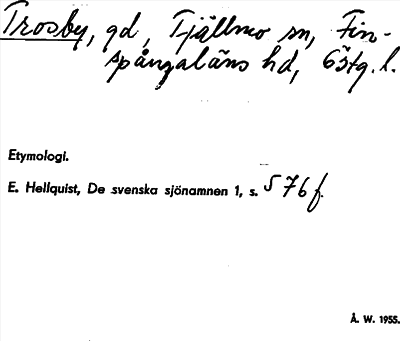 Trosby, gd, Tjällmo sn, Fin-
spångaläns hd, Östg. l.
Etymologi.
E. Hellquist, De svenska sjönamnen 1, s. 576 f.
Å. W. 1955.